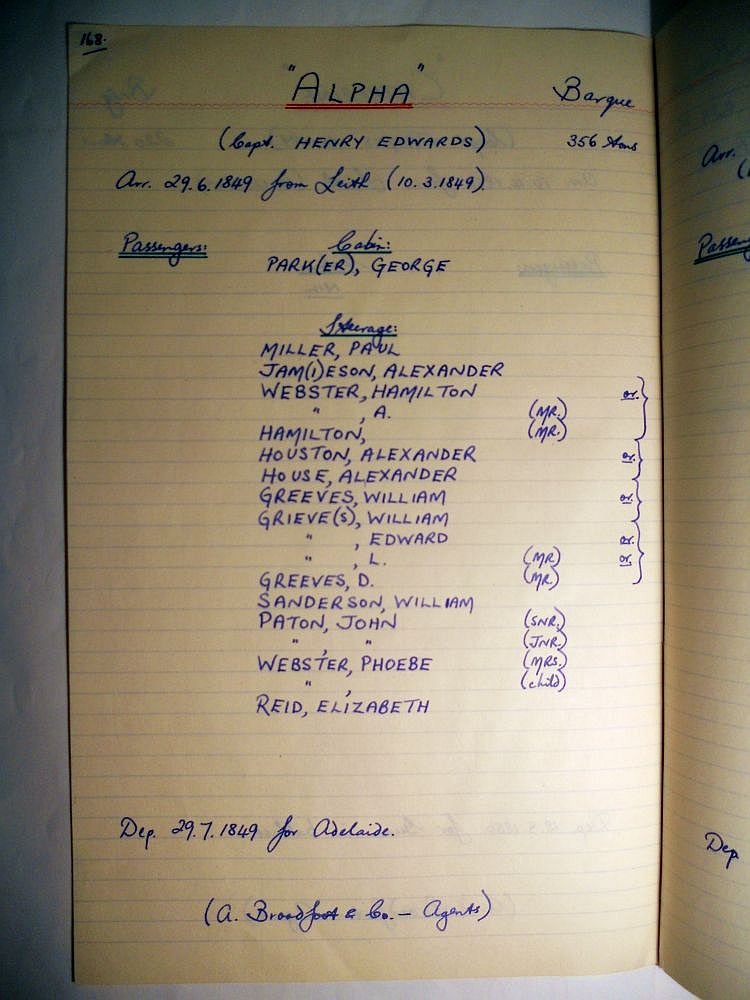 168.
"ALPHA" Barque
(Capt. HENRY EDWARDS) 356 tons
Arr. 29.6.1849 from Leith (10.3.1849)
Passengers: Cabin:
PARK(ER), GEORGE
Steerage:
MILLER, PAUL
JAM(I)ESON, ALEXANDER
WEBSTER, HAMILTON or.
" , A. (MR.)
HAMILTON, (MR.)
HOUSTON, ALEXANDER or.
HOUSE, ALEXANDER
GREEVES, WILLIAM or.
GRIEVE(S), WILLIAM
" , EDWARD or.
" , L. (MR) or.
GREEVES, D. (MR.)
SANDERSON, WILLIAM
PATON, JOHN (SNR.)
" , " (JNR.)
WEBSTER, PHOEBE (MRS.)
" , (child)
REID, ELIZABETH
Dep. 29.7.1849 for Adelaide.
(A. Broadfoot & Co. - Agents)
Arr.
Passeng
Dep